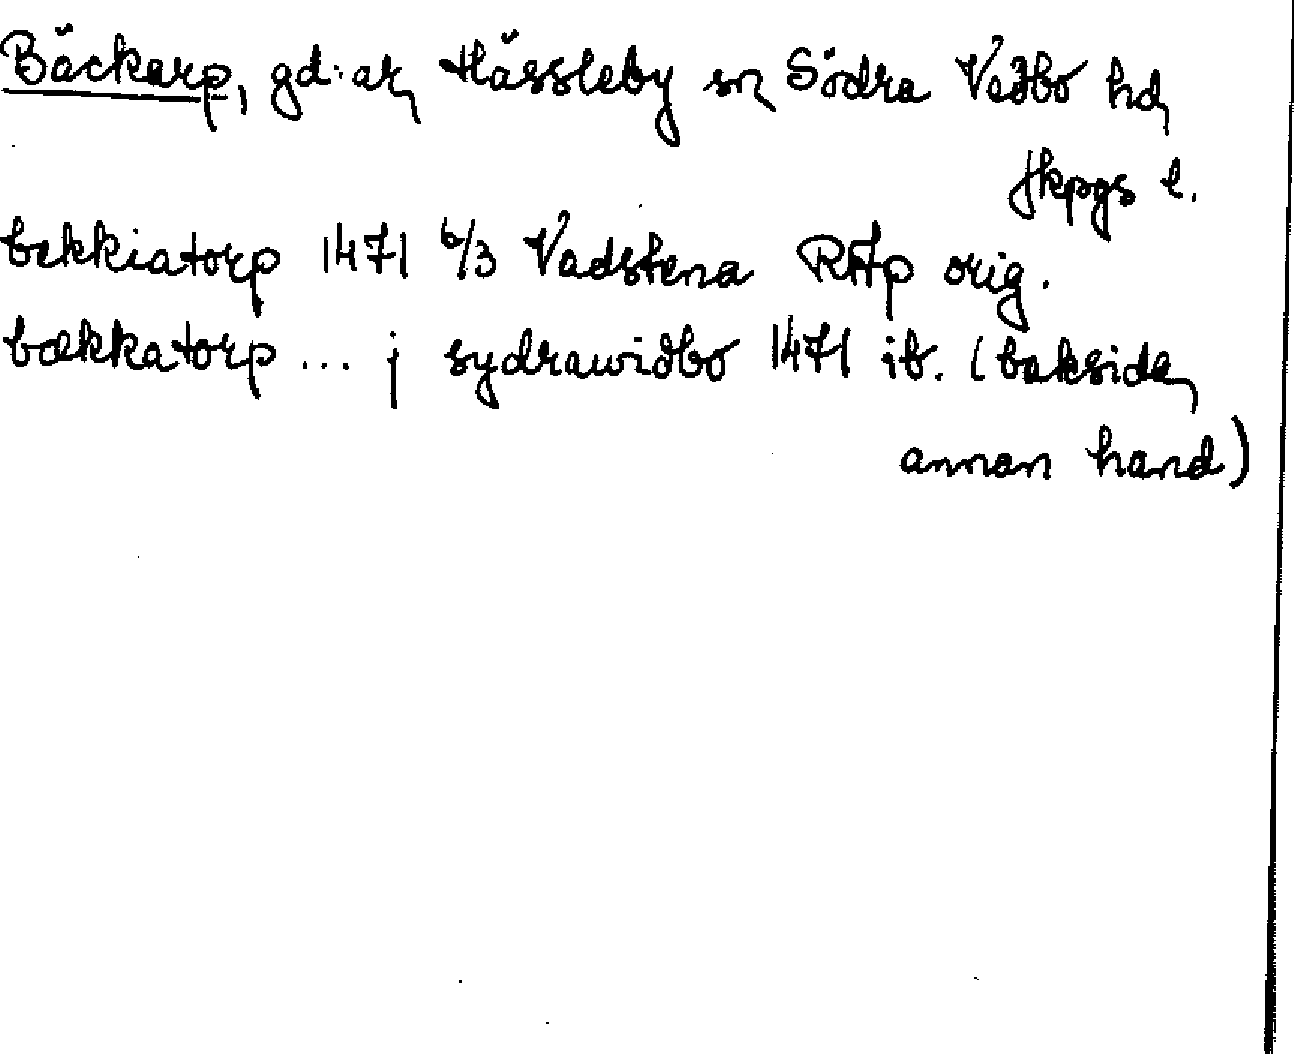 Bäckarp, gd:ar, Hässleby sn, Södra Vedbo hd,
Jkpgs l.
bekkiatorp 1471 6/3 Vadstena RAp orig.
bækkatorp ... j sydrawidbo 1471 ib. (baksida,
annan hand)